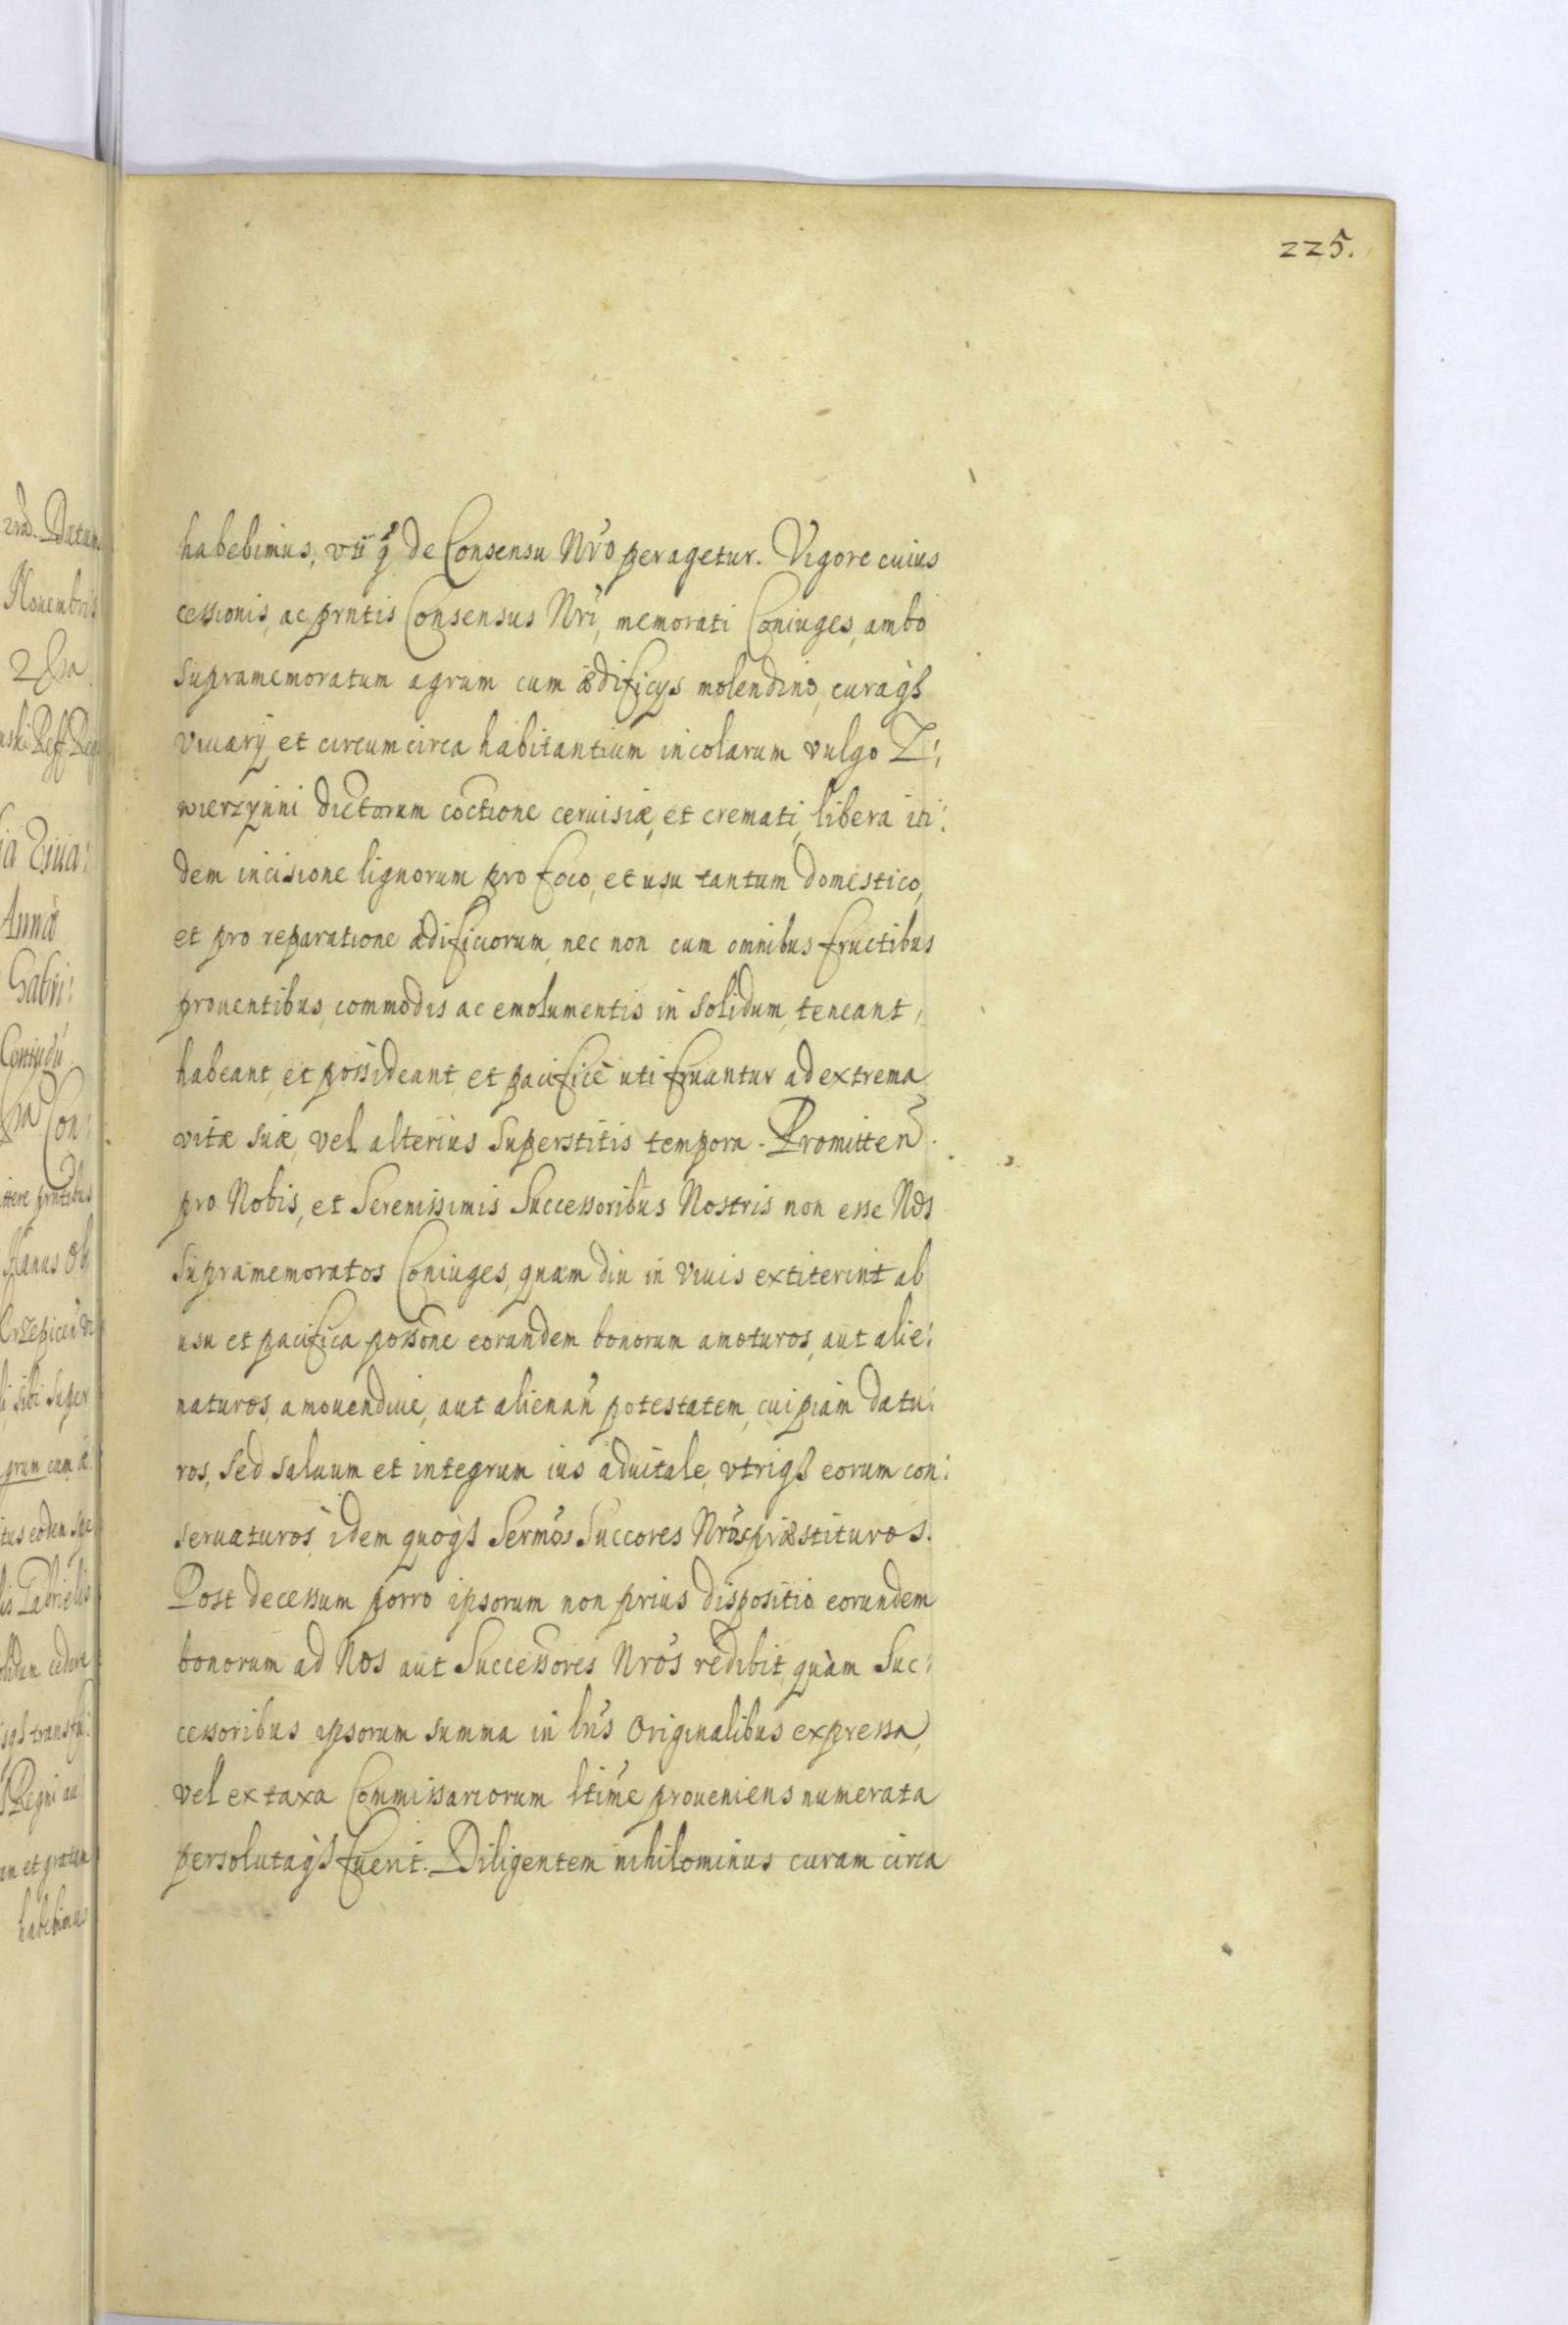 225.
habebimus, uti q̃ de Consensu Nr̃o peragetur. Vigore cuius
cessionis, ac prñtis Consensus Nr̃i, memorati Coniuges, ambo
supramemoratum agrum cum ædificijs molendino, curaq̃
viuarij, et circumcirca habitantium incolarum vulgo Z:
wierzynni dictorum coctione ceruisiæ, et cremati, libera iti:
dem incisione lignorum pro foco, et usu tantum domestico,
et pro reparatione ædificiorum, nec non cum omnibus fructibus
prouentibus, commodis ac emolumentis in solidum, teneant,
habeant, et possideant, et pacificè uti fruantur ad extrema
vitæ suæ, vel alterius superstitis tempora. Promitteñ.
pro Nobis, et Serenissimis Successoribus Nostris non esse Nos
supramemoratos Coniuges, quam diu in viuis extiterint ab
usu et pacifica possõne eorundem bonorum amoturos, aut alie:
naturos, amouendiue, aut alienañ potestatem, cuipiam datu:
ros, sed saluum et integrum ius aduitale, vtriq̃ eorum con:
seruaturos, idem quoq̃ Serm̃os Succores Nr̃os præstituros.
Post decessum porro ipsorum non prius dispositio eorundem
bonorum ad Nos aut Successores Nr̃os redibit, quàm Suc:
cessoribus ipsorum summa in lr̃is Originalibus expressa,
vel ex taxa Commissariorum ltime proueniens numerata
persolutaq̃ fuerit. Diligentem nihilominus curam circa